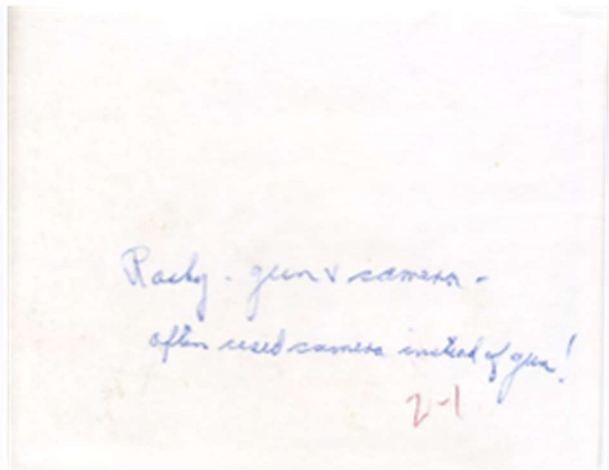 Rocky - gun & camera -
often used camera instead of gun!
2-1